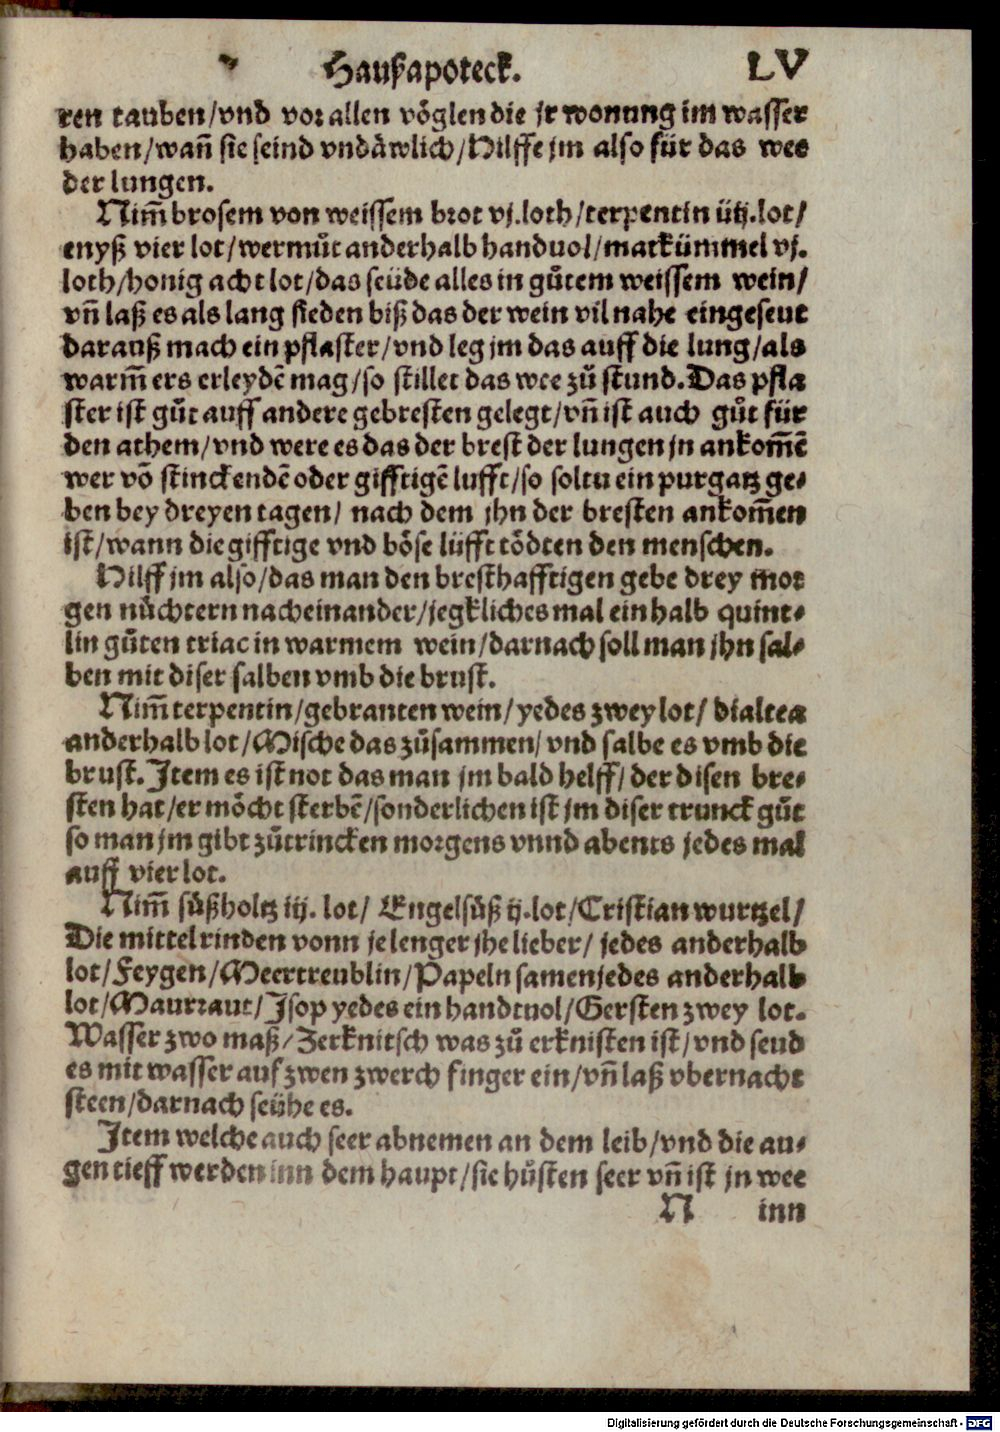 Haußapoteck. LV
ren tauben/vnd vor allen vöglen die jr wonung im wasser
haben/wañ sie seind vndäwlich/Hilffe jm also für das wee
der lungen.
Nim̄ brosem von weissem brot vj.loth/terpentin iiij.lot/
enyß vier lot/wermůt anderhalb handuol/matkümmel vj.
loth/honig acht lot/das seüde alles in gůtem weissem wein/
vñ laß es als lang sieden biß das der wein vil nahe eingeseut
darauß mach ein pflaster/vnd leg jm das auff die lung/als
warm̄ ers erleydē mag/so stillet das wee zů stund. Das pfla
ster ist gůt auff andere gebresten gelegt/vñ ist auch gůt für
den athem/vnd were es das der brest der lungen jn ankom̄ē
wer vō stinckendē oder gifftigē lufft/so soltu ein purgatz ge⸗
ben bey dreyen tagen/ nach dem jhn der bresten ankom̄en
ist/wann die gifftige vnd böse lüfft tödten den menschen.
Hilff jm also/das man den bresthafftigen gebe drey mor
gen nüchtern nacheinander/jegkliches mal ein halb quint⸗
lin gůten triac in warmem wein/darnach soll man jhn sal⸗
ben mit diser salben vmb die brust.
Nim̄ terpentin/gebranten wein/yedes zwey lot/ dialtea
anderhalb lot/Mische das zůsammen/vnd salbe es vmb die
brust. Item es ist not das man jm bald helff/der disen bre⸗
sten hat/er möcht sterbē/sonderlichen ist jm diser trunck gůt
so man jm gibt zůtrincken morgens vnnd abents jedes mal
auff vier lot.
Nim̄ süßholtz iij. lot/ Engelsüß ij.lot/Cristian wurtzel/
Die mittelrinden vonn jelenger jhe lieber/ jedes anderhalb
lot/Feygen/Meertreublin/Papeln samen jedes anderhalb
lot/Maurraut/Isop yedes ein handtuol/Gersten zwey lot.
Wasser zwo maß/Zerknitsch was zů erknisten ist/vnd seud
es mit wasser auf zwen zwerch finger ein/vñ laß vbernacht
steen/darnach seühe es.
Item welche auch seer abnemen an dem leib/vnd die au⸗
gen tieff werden inn dem haupt/sie hůsten seer vñ ist jn wee
N inn
Digitalisierung gefördert durch die Deutsche Forschungsgemeinschaft - DFG